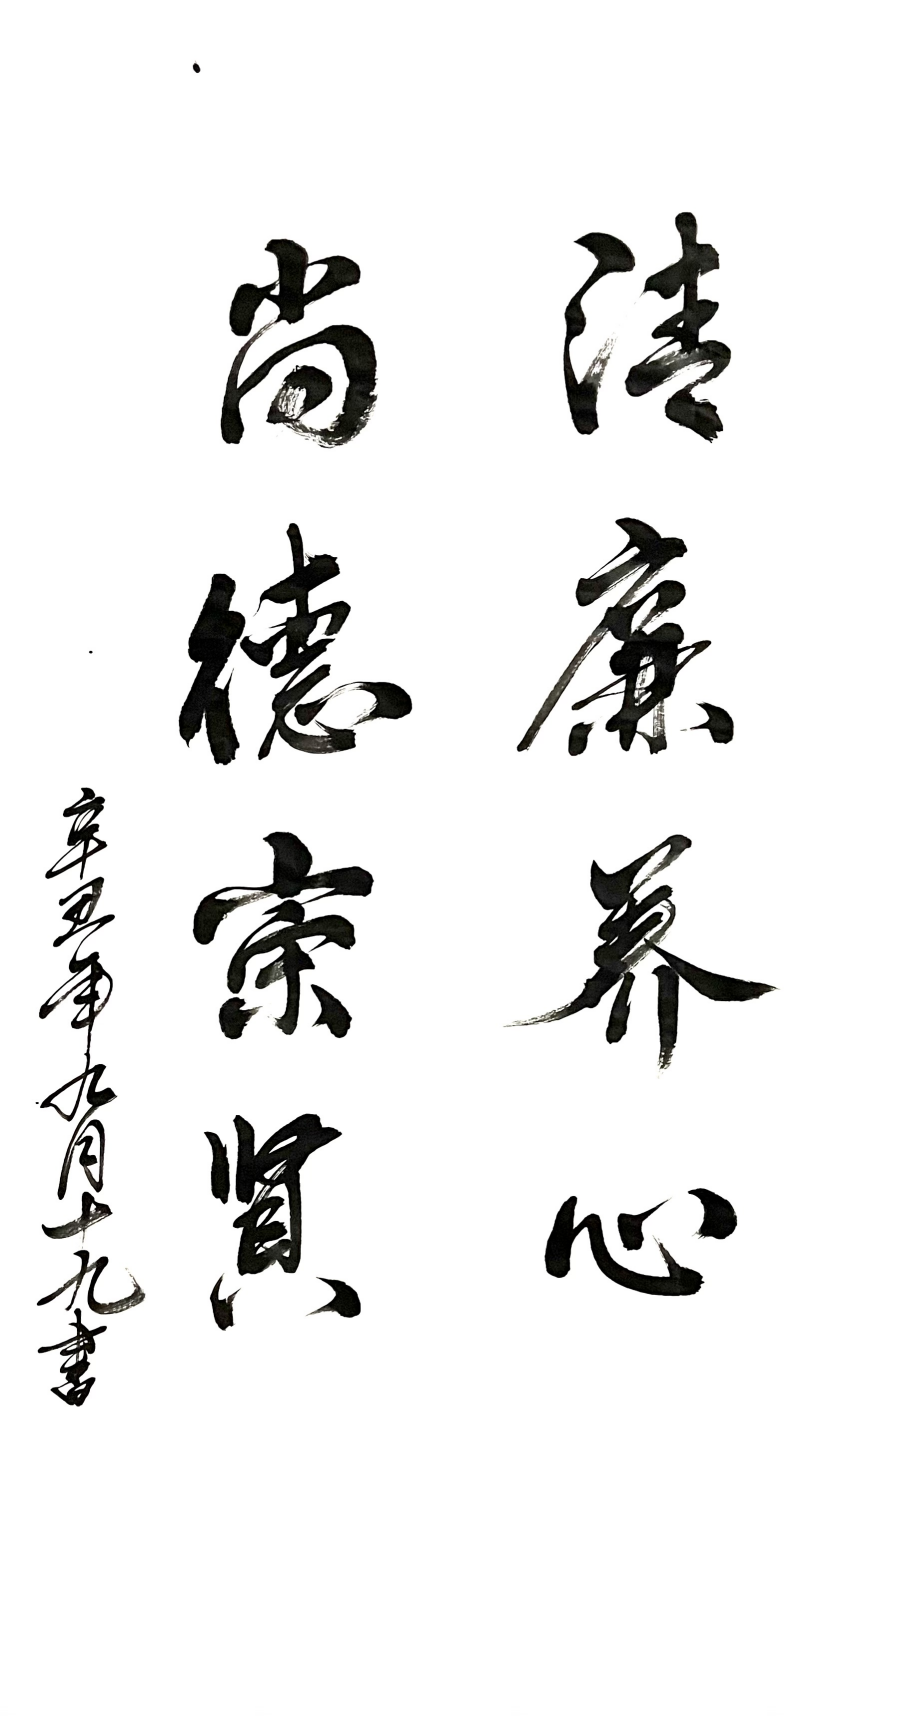 清廉养心
尚德宗贤
辛丑年九月十九書